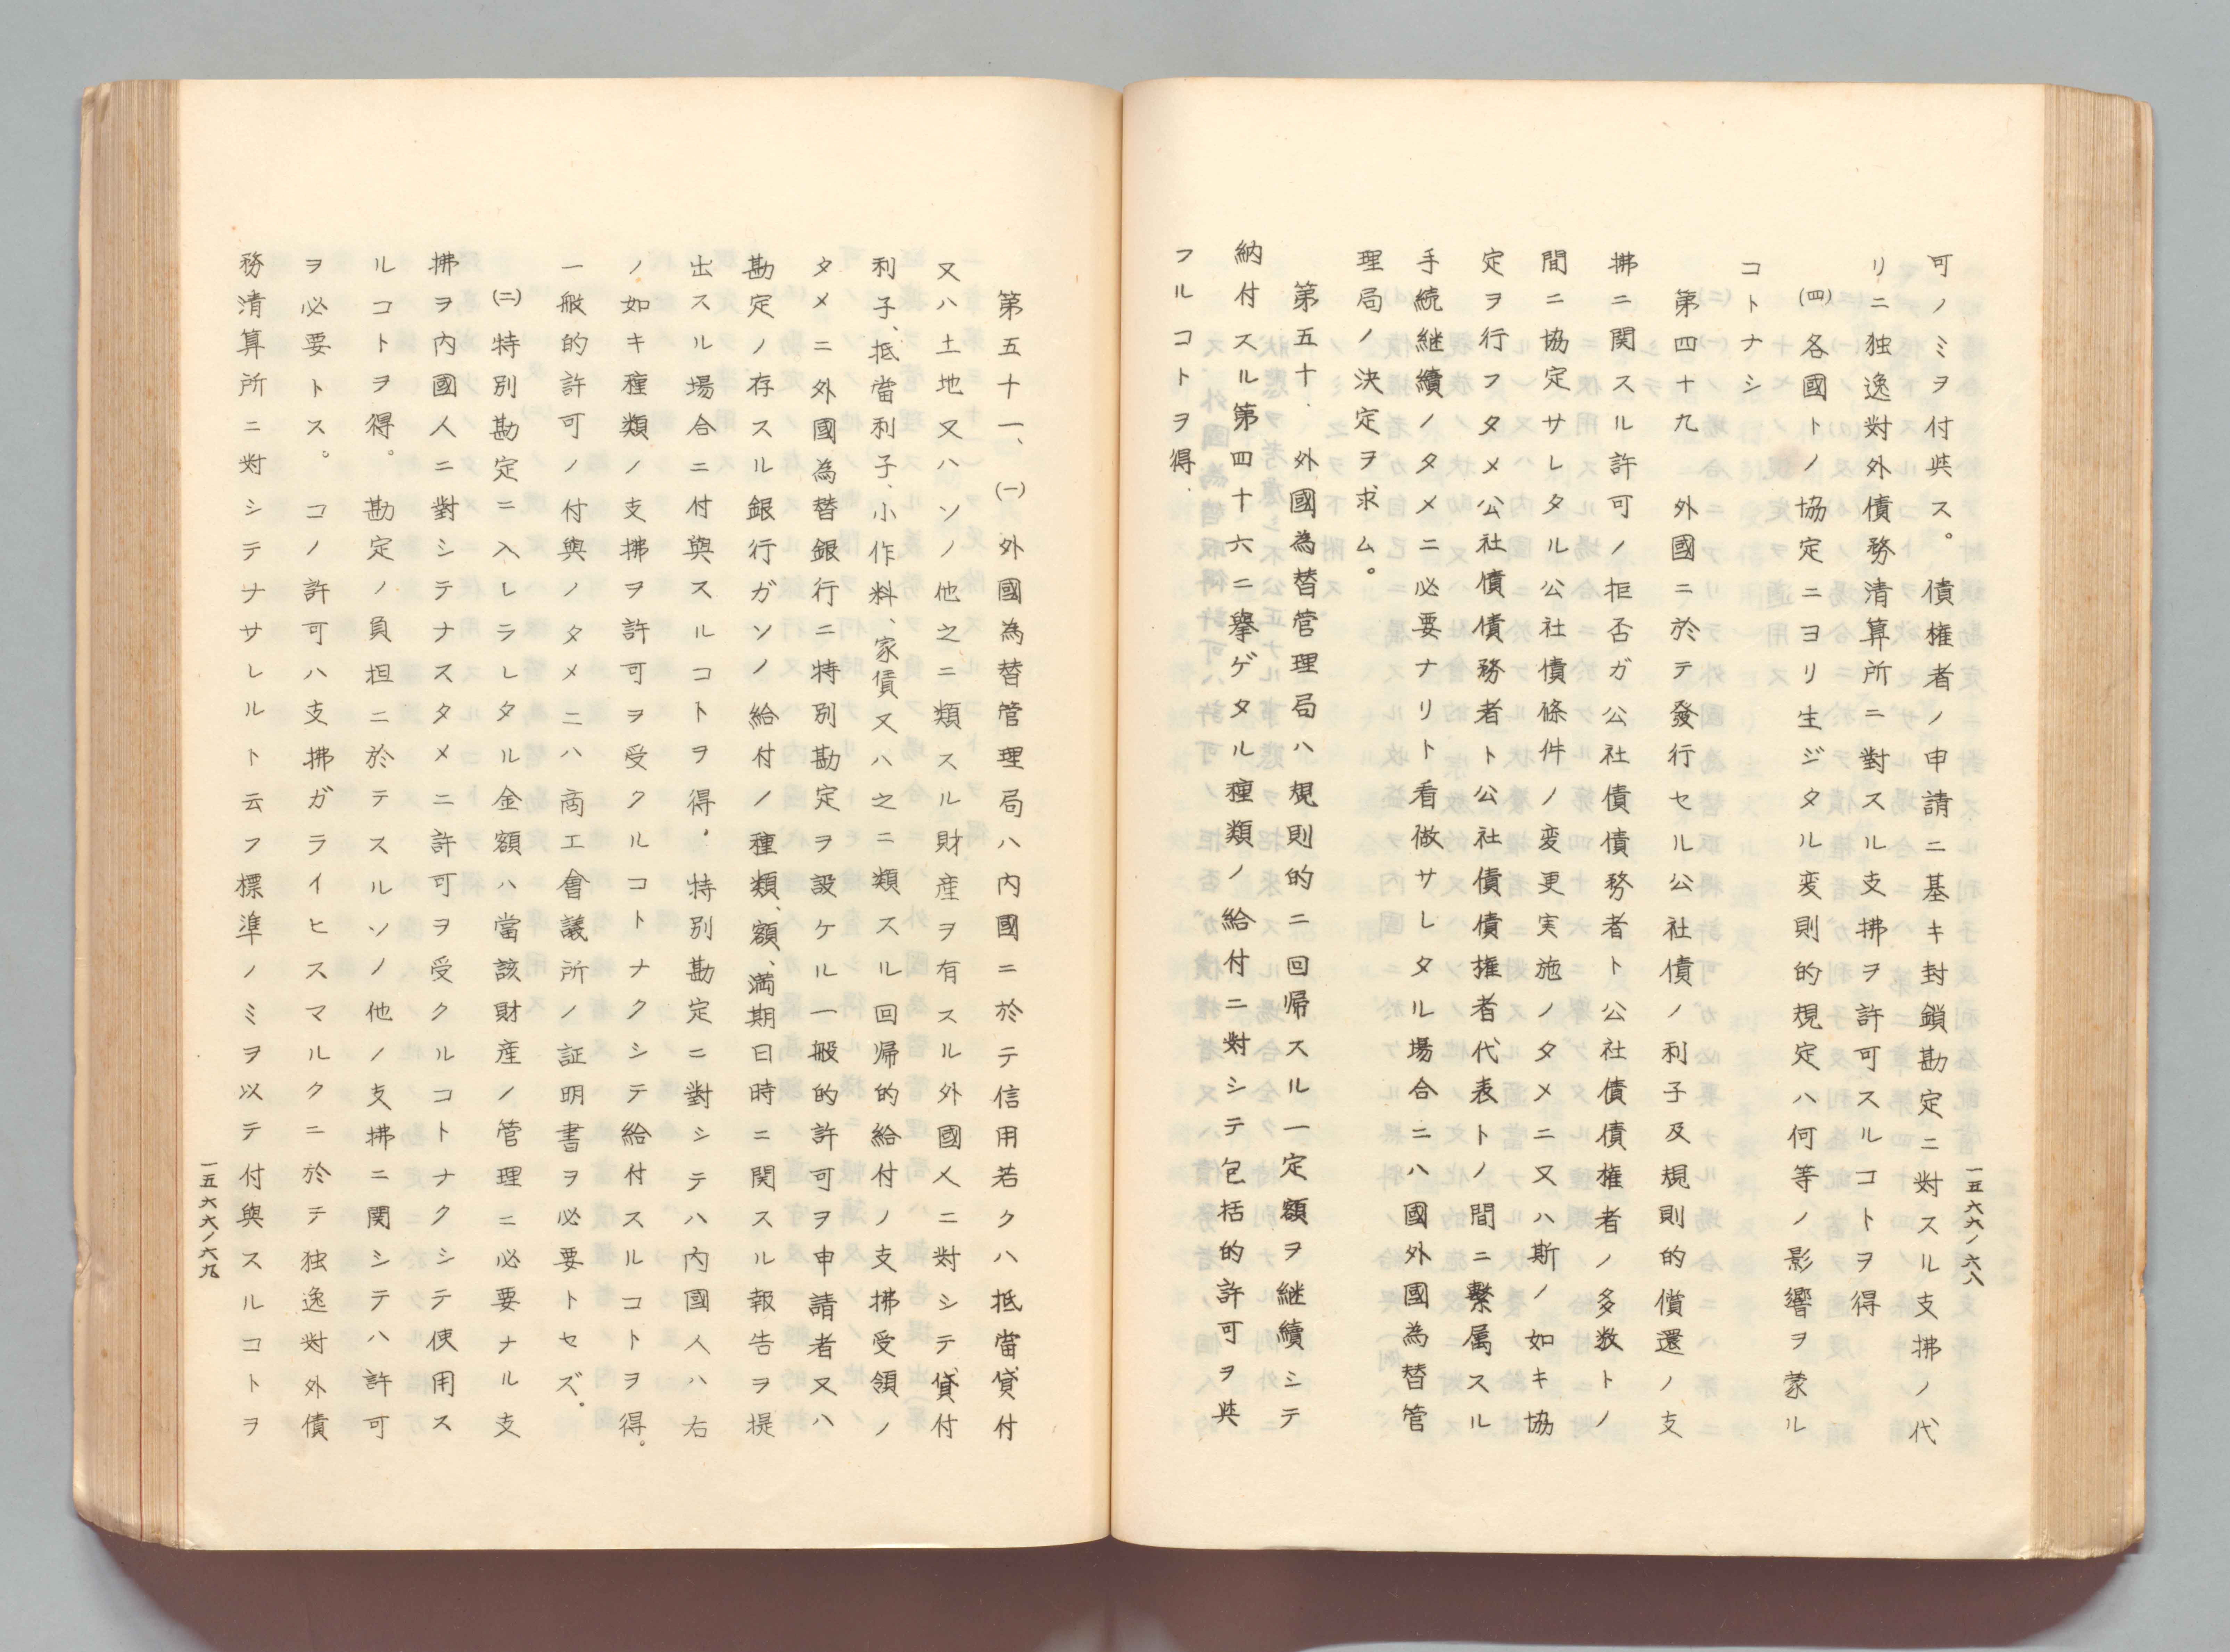 可ノミヲ付与ス。債権者ノ申請ニ基キ封鎖勘定ニ対スル支拂ノ代
リニ独逸対外債務清算所ニ對スル支拂ヲ許可スルコトヲ得
㈣ 各國トノ協定ニヨリ生ジタル変則的規定ハ何等ノ影響ヲ蒙ル
コトナシ
第四十九 外國ニ於テ發行セル公社債ノ利子及規則的償還ノ支
拂ニ関スル許可ノ拒否ガ公社債債務者ト公社債債権者ノ多数トノ
間ニ協定サレタル公社債條件ノ変更実施ノタメニ又ハ斯ノ如キ協
定ヲ行フタメ公社債債務者ト公社債債権者代表トノ間ニ繫属スル
手続継續ノタメニ必要ナリト看做サレタル場合ニハ國外國為替管
理局ノ決定ヲ求ム。
第五十. 外國為替管理局ハ規則的ニ回帰スル一定額ヲ継續シテ
納付スル第四十六ニ擧ゲタル種類ノ給付ニ対シテ包括的許可ヲ与
フルコトヲ得.
一五六六ノ六八
第五十一、㈠ 外國為替管理局ハ内國ニ於テ信用若クハ抵當貸付
又ハ土地又ハソノ他之ニ類スル財産ヲ有スル外國人ニ対シテ貸付
利子、抵當利子、小作料、家賃又ハ之ニ類スル回帰的給付ノ支拂受領ノ
タメニ外國為替銀行ニ特別勘定ヲ設ケル一般的許可ヲ申請者又ハ
勘定ノ存スル銀行ガソノ給付ノ種類、額、満期日時ニ関スル報告ヲ提
出スル場合ニ付與スルコトヲ得。特別勘定ニ對シテハ内國人ハ右
ノ如キ種類ノ支拂ヲ許可ヲ受クルコトナクシテ給付スルコトヲ得。
一般的許可ノ付與ノタメニハ商工會議所ノ証明書ヲ必要トセズ。
㈡ 特別勘定ニ入レラレタル金額ハ當該財産ノ管理ニ必要ナル支
拂ヲ内國人ニ對シテナスタメニ許可ヲ受クルコトナクシテ使用ス
ルコトヲ得。勘定ノ負担ニ於テスルソノ他ノ支拂ニ関シテハ許可
ヲ必要トス。コノ許可ハ支拂ガライヒスマルクニ於テ独逸対外債
務清算所ニ対シテナサレルト云フ標準ノミヲ以テ付與スルコトヲ
一五六六ノ六九